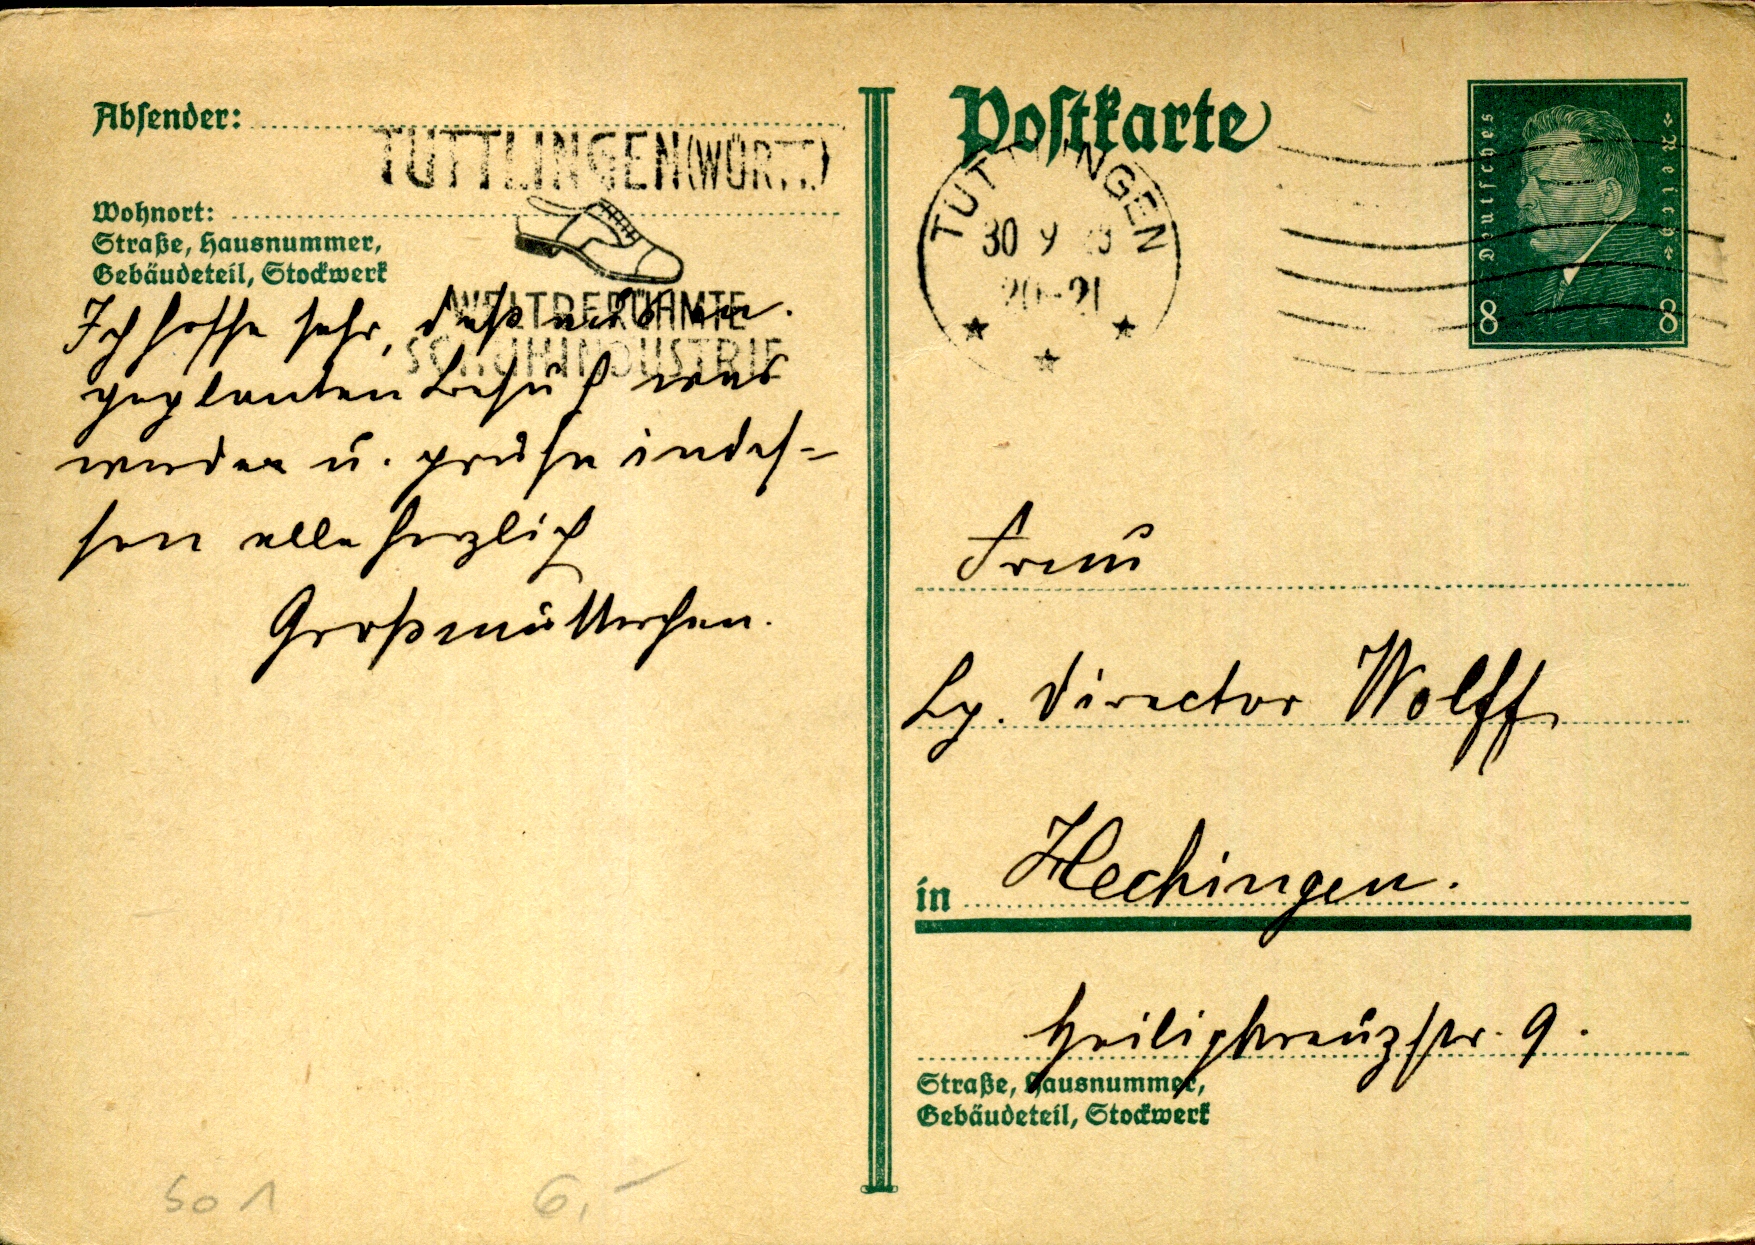 Absender:
TUTTLINGEN (WÜRTT.)
Wohnort:
Straße, Hausnummer,
Gebäudeteil, Stockwerk
WELTBERÜHMTE
SCHUHINDUSTRIE
Ich hoffe sehr, daß aus
geplanten Besuch was
werden u. grüße indes-
sen alle herzlich
Großmütterchen.
Postkarte
TUTTLINGEN
30 9
20-21
Deutsches Reich
8 8
Frau
Lg. Director Wolff
in Hechingen.
Heiligkreuzstr. 9.
Straße, Hausnummer,
Gebäudeteil, Stockwerk
50 1
6,-